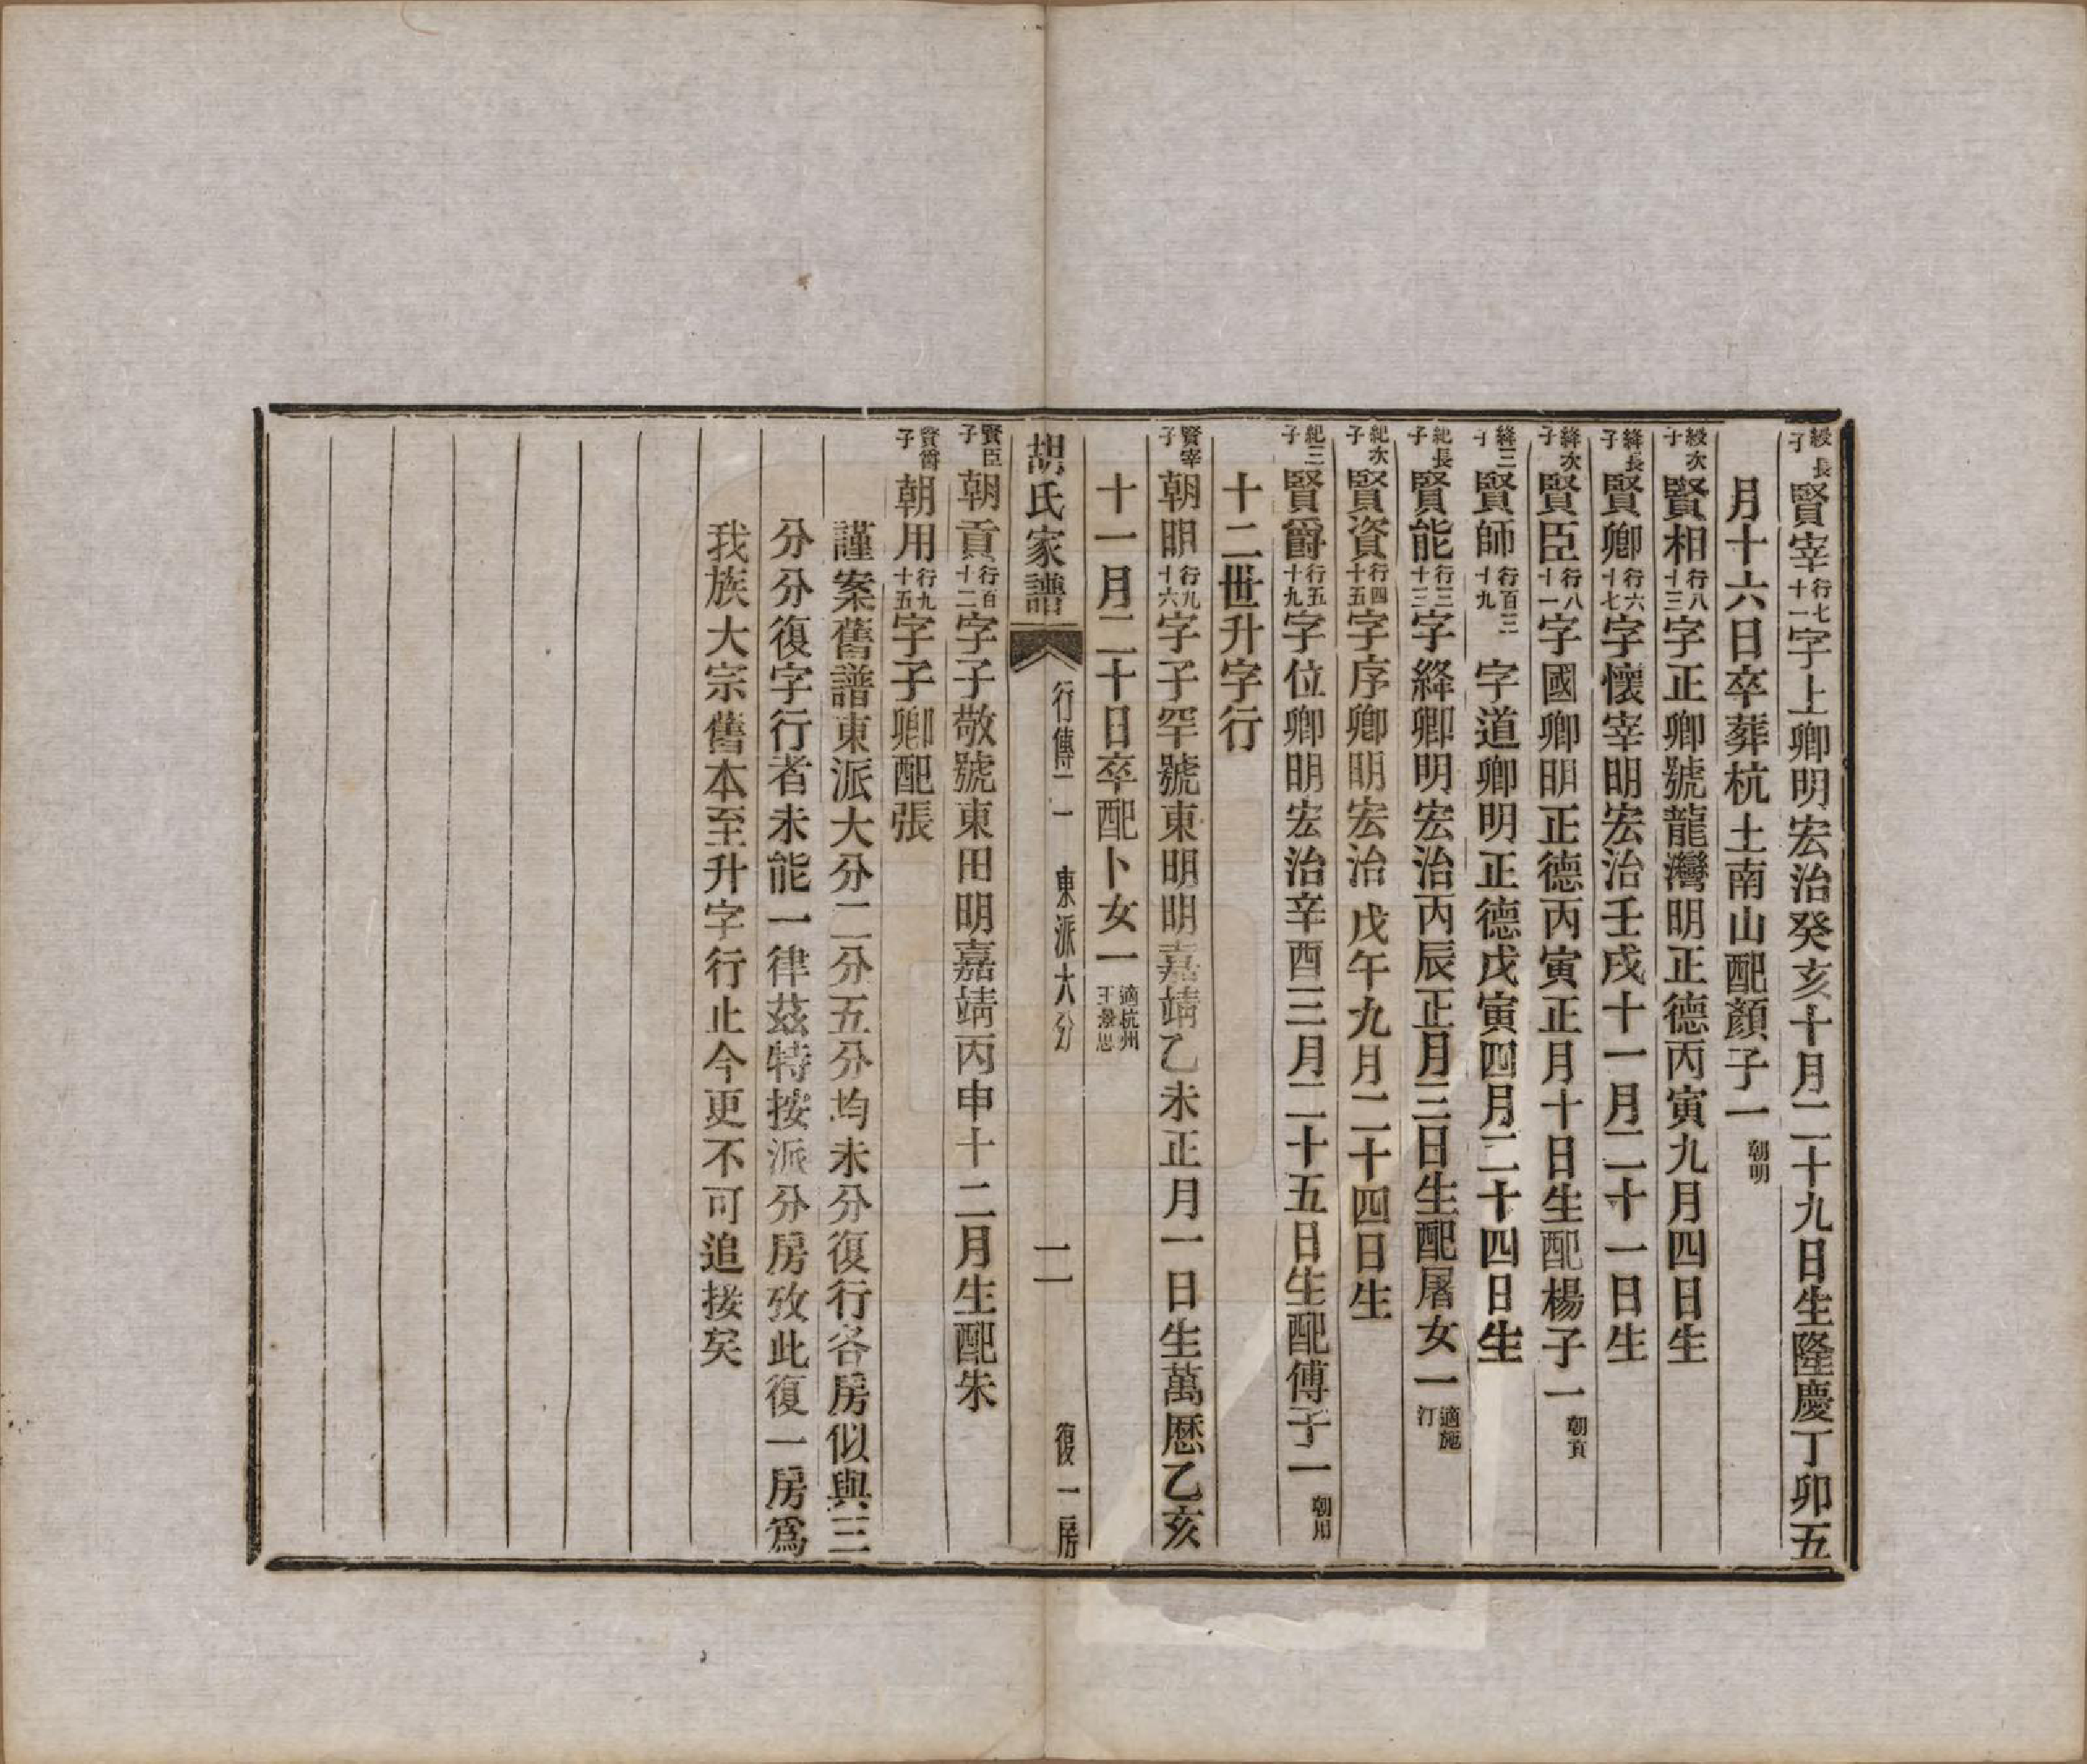 綬長子賢宰行七十一字上卿明宏治癸亥十月二十九日生隆慶丁卯五
月十六日卒葬杭土南山配顏子一朝明
綬次子賢相行八十三字正卿號龍灣明正德丙寅九月四日生
絳長子賢卿行六十七字懷宰明宏治壬戌十一月二十一日生
絳次子賢臣行八十一字國卿明正德丙寅正月十日生配楊子一朝貢
絳三子賢師行百三十九字道卿明正德戊寅四月二十四日生
紀長子賢能行三十三字絳卿明宏治丙辰正月三日生配屠女一適施汀
紀次子賢資行四十五字序卿明宏治戊午九月二十四日生
紀三子賢爵行五十九字位卿明宏治辛酉三月二十五日生配傅子一朝用
十二世升字行
賢宰子朝明行九十六字子罕號東明明嘉靖乙未正月一日生萬歷乙亥
十一月二十日卒配卜女一適杭州王景思
胡氏家譜 行傳二一 東派大分 二 復一房
賢臣子朝貢行百十二字子敬號東田明嘉靖丙申十二月生配朱
賢爵子朝用行九十五字子卿配張
謹案舊譜東派大分二分五分均未分復行各房似與三
分分復字行者未能一律茲特按派分房攷此復一房爲
我族大宗舊本至升字行止今更不可追接矣